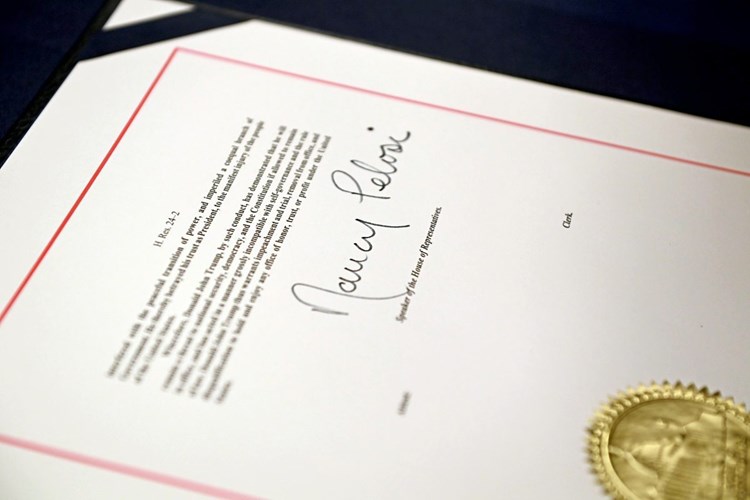 H. Res. 24–2
interfered with the peaceful transition of power, and imperiled a coequal branch of
Government. He thereby betrayed his trust as President, to the manifest injury of the people
of the United States.
Wherefore, Donald John Trump, by such conduct, has demonstrated that he will
remain a threat to national security, democracy, and the Constitution if allowed to remain
in office, and has acted in a manner grossly incompatible with self-governance and the rule
of law. Donald John Trump thus warrants impeachment and trial, removal from office, and
disqualification to hold and enjoy any office of honor, trust, or profit under the United
States.
Nancy Pelosi
Speaker of the House of Representatives.
Clerk.